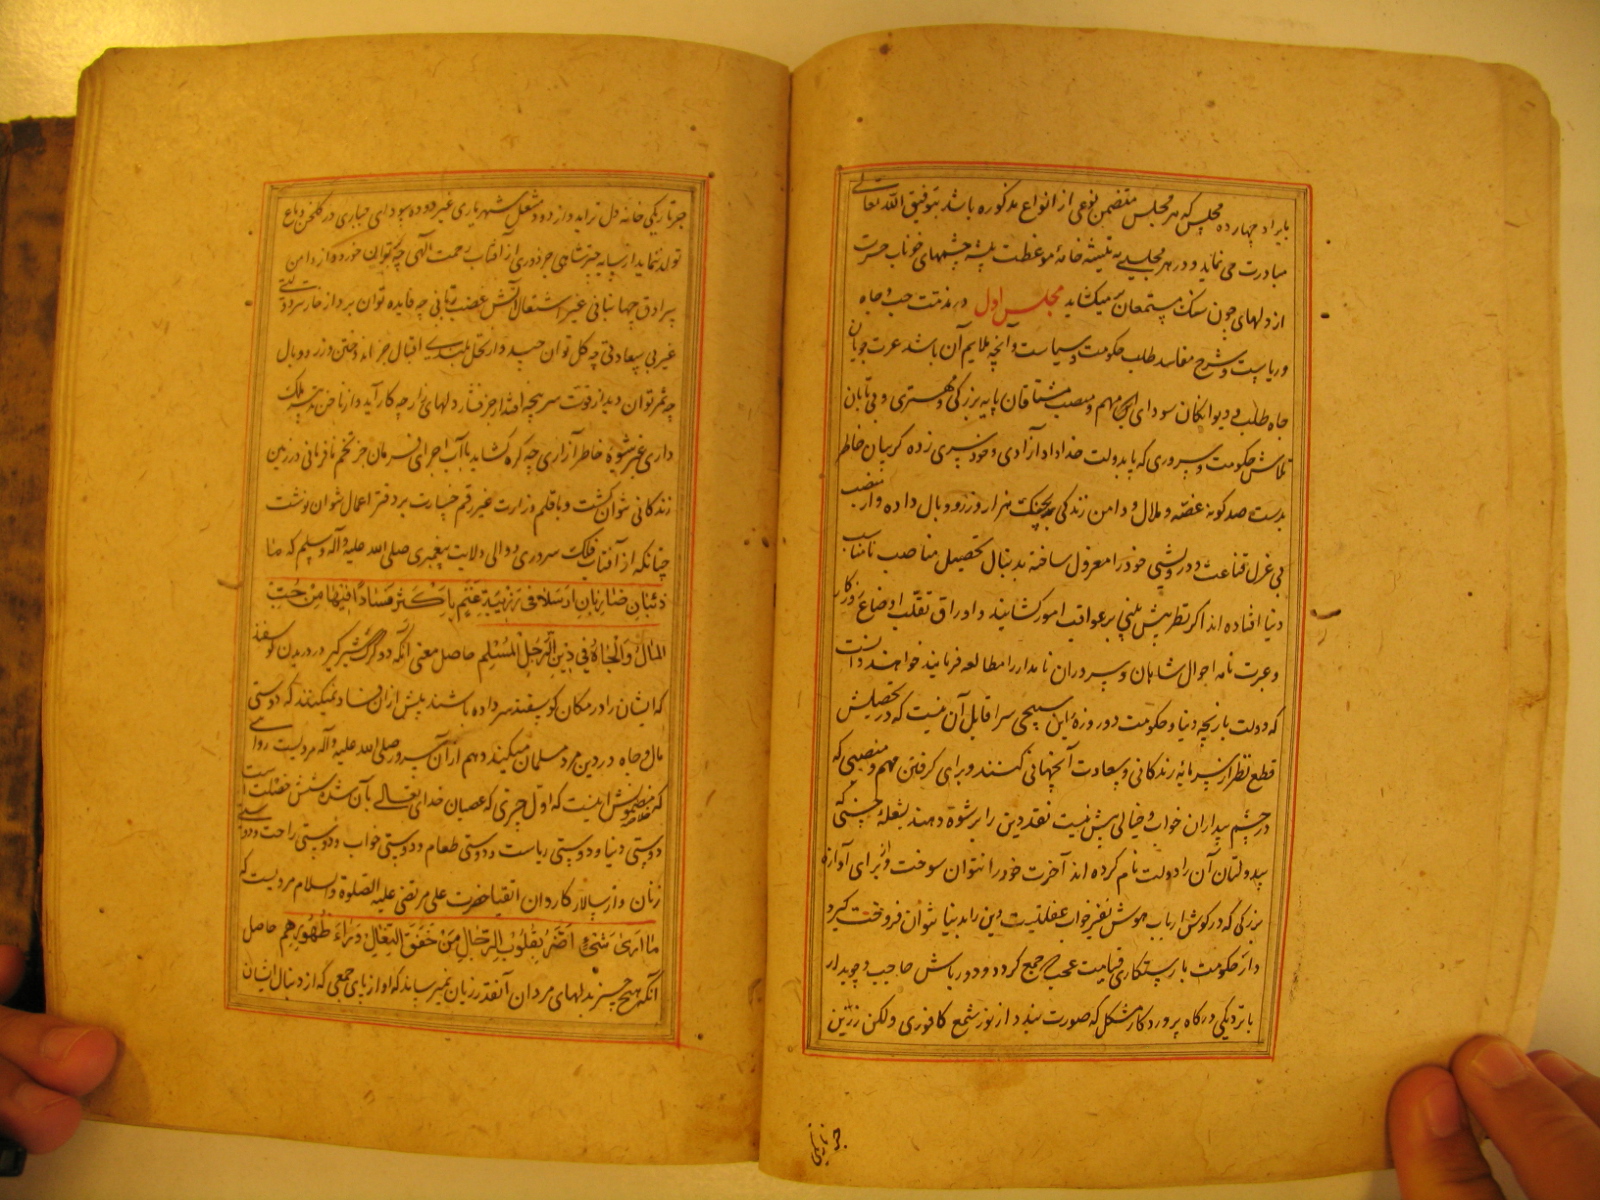 بایراد چهارده مجلس که هر مجلس متضمن نوعی از انواع مذکوره باشد بتوفیق الله تعالی
مبادرت می نماید و در هر مجلسی به تیشهٔ خامهٔ موعظت پیشه چشمهای خوناب حسرت
از دلهای چون سنک مستمعان میکشاید مجلس اول در مذمت حب جاه
و ریاست و شرح مفاسد طلب حکومت و سیاست و آنچه ملایم آن باشد عزت جویان
جاه طلب و دیوانکان سودای مهم و منصب مشتاقان پایه بزرکی و مهتری و بی تابان
تلاش حکومت و سروری که پا بدولت خداداد آزادی و خودسری زده کریبان خاطر
بدست صد کونه غصّه و ملال و دامن زندکی بچنک هزار وزر و وبال داده و از منصب
بی عزل قناعت و درویشی خود را معزول ساخته بدنبال تحصیل مناصب نامناسب
دنیا افتاده اند اکر نظر پیش بینی بر عواقب امور کشایند و اوراق تقلّب اوضاع روزکار
و عبرت نامه احوال شاهان و سروران نامدار را مطالعه فرمایند خواهند دانست
که دولت بازیچه دنیا و حکومت دو روزهٔ این سپنجی سرا قابل آن نیست که در تحصیلش
قطع نظر از سرمایهٔ زندکانی و سعادت آنجهانی کنند و برای کرفتن مهم و منصبی که
در چشم بیداران خواب و خیالی بیش نیست نقد دین را برشوة دهند بشعلهٔ چنینی که
بیدولتان آن را دولت نام کرده اند آخرت خود را نتوان سوخت و برای آوازهٔ
بزرکی که در کوش ارباب هوش نفیر خواب غفلتست دین را بدنیا نتوان فروخت کیر و
دار حکومت با رستکاری قیامت عجب جمع کردد و دورباش حاجب و چوبدار
با نزدیکی درکاه پروردکار مشکل که صورت بندد از نور شمع کافوری و لکن زرین
جز تاریکی
جز تاریکی خانه دل نزاید و از دود مشعل شهریاری غیر دوده سودای جباری در کلخن دماغ
تولد ننماید از سایه چتر شاهی جز دوری از آفتاب رحمت الهی چه توان خورد که از دامن
سرادق جهانبانی غیر اشتعال آتش غضب ربانی چه فایده توان برد از خار سر دستی
غیر بی سعادتی چه کل توان چید و از نخل بلندی اقبال جز اندوختن وزر و وبال
چه ثمر توان دید از قوت سرپنجه اقتدار جز فشار دلهای زار چه کار آید و از ناخن
داری غیر شیوهٔ خاطر آزاری چه کره کشاید با آب اجرای فرمان جز تخم نافرمانی در زمین
زندکانی نتوان کشت و با قلم وزارت غیر رقم خسارت بر دفتر اعمال نتوان نوشت
چنانکه از آفتاب فلک سروری و والی ولایت پیغمبری صلی الله علیه و آله وسلم که ما
ذئبان ضاریان ارسلا فی زریبة غنم باکثر فسادا فیها من حب
المال والجاه فی دین الرجل المسلم حاصل معنی آنکه دو کرک شیرکیر در دریدن کوسفند
که ایشان را در مکان کوسفند سر داده باشند بیش از آن فساد نمیکنند که دوستی
مال و جاه در دین مرد مسلمان میکند و هم از آن سرور صلی الله علیه و آله مرویست روایتی
که خلاصه مضمونش اینست که اول چیزی که عصیان خدای تعالی بآن شده شش خصلت است
دوستی دنیا و دوستی ریاست و دوستی طعام و دوستی خواب و دوستی راحت و دوستی
زنان و از سالار کاردان اتقیا حضرت علی مرتضی علیه الصلوة والسلام مرویست که
ما اری شیء اضر بقلوب الرجال من خفق النعال وراء ظهورهم حاصل
آنکه هیچ چیز بدلهای مردان آنقدر زیان نمیرساند که آواز پای جمعی که از دنبال ایشان